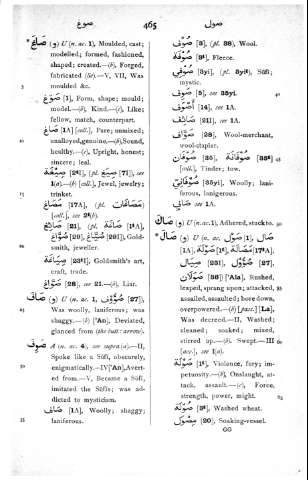 صوغ 465 صول
صَاغَ (و) U (n. ac. 1), Moulded, cast;
modelled; formed, fashioned,
shaped; created.—(b), Forged,
fabricated —V, VII, Was
moulded &c.
صَوْغ [1], Form, shape; mould;
model.—(b), Kind.—(c), Like;
fellow, match, counterpart.
صَاغ [1A] [coll.], Pure; unmixed;
unalloyed, genuine.—(b), Sound,
healthy.—(c), Upright, honest;
sincere; leal.
صِيغَة (pl. صِيَغ [7]), see
1(a).—(b) [coll.], Jewel, jewelry;
trinket.
[17A], (pl. مَصَاغَات)
[coll.], see
صَائِغ [21], (pl. صَاغَة
صُوَّاغ صُيَّاغ [29]), Gold-
smith, jeweller.
صِيَاغَة Goldsmith's art,
craft, trade.
صَوَّاغ [28], see 21.—(b), Liar.
صَافَ (و) U (n. ac. 1, صُؤُوف [27]),
Was woolly, laniferous; was
shaggy.—(b) ['An], Deviated,
glanced from (the butt: arrow).
صَوِفَ A (n. ac. 4), see supra (a).—II,
Spoke like a Sūfī, obscurely,
enigmatically.—IV ['An], Avert-
ed from.—V, Became a Sūfī,
imitated the Sūfīs; was ad-
dicted to mysticism.
صَاف [1A], Woolly; shaggy;
laniferous.
صُوف [3], (pl. 38), Wool.
صُوفَة Fleece.
صُوفِيّ [3yi], (pl. صُوفِيَّة), Sūfī;
mystic.
صَوِف [5], see 3yi.
أَصْوَف [14], see 1A.
صَائِف [21], see 1A.
صَوَّاف [28], Wool-merchant,
wool-stapler.
صُوفَان صُوفَانَة
[coll.], Tinder; tow.
صُوفَانِيّ Woolly; lani-
ferous, lanigerous.
see 1A.
صَاكَ (و) U (n. ac. 1), Adhered, stuck to.
صَالَ (و) U (n. ac. صَوْل [1], صَال
[1A], صَوْلَة
صُؤُول [27], صِيَال [23],
صَوَلَان ['Ala], Rushed,
leaped, sprang upon; attacked,
assailed, assaulted; bore down,
overpowered.—(b) [pass.] [La],
Was decreed.—II, Washed;
cleaned; soaked; mixed,
stirred up.—(b), Swept.—III
[acc.], see 1(a).
صَوْلَة Violence, fury; im-
petuosity.—(b), Onslaught, at-
tack, assault.—(c), Force,
strength, power, might.
صُولَة Washed wheat.
مِصْوَل [20], Soaking-vessel.
GG